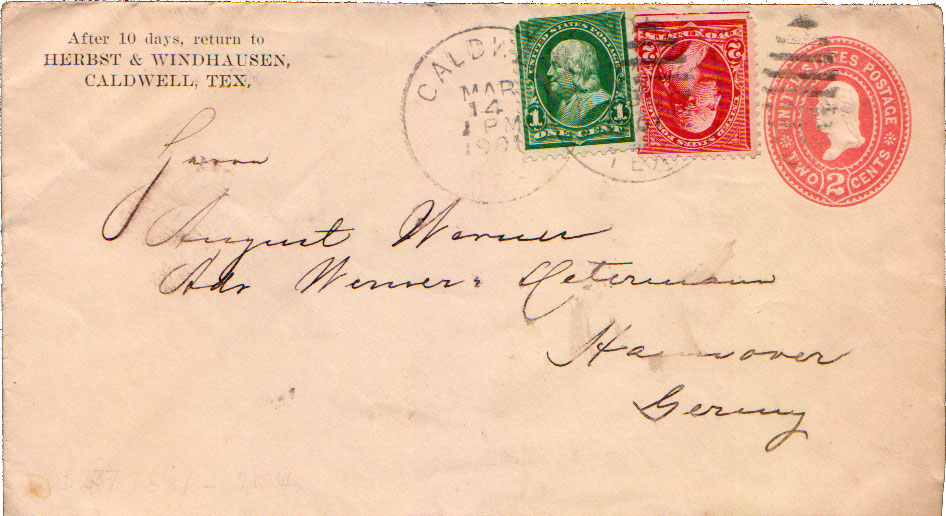 After 10 days, return to
HERBST & WINDHAUSEN,
CALDWELL, TEX,
CALDW
MAR
14
PM
190
UNITED STATES POSTAGE
1 1
ONE CENT
2 2
UNITED STATES POSTAGE
TWO 2 CENTS
Herrn
August Werner
Adr Werner: Oeterman
Hannover
Germny